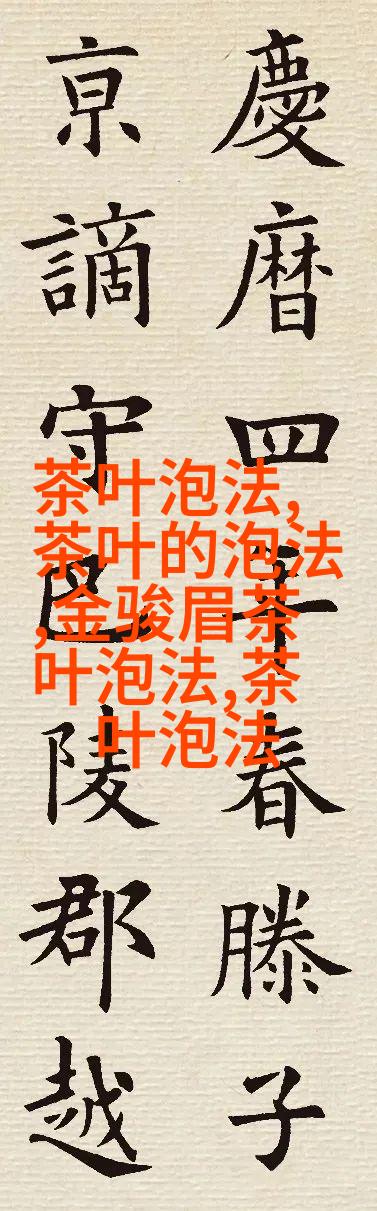 慶曆四年春滕子
京謫守巴陵郡越
茶叶泡法,
茶叶的泡法
,金骏眉茶
叶泡法,茶
叶泡法